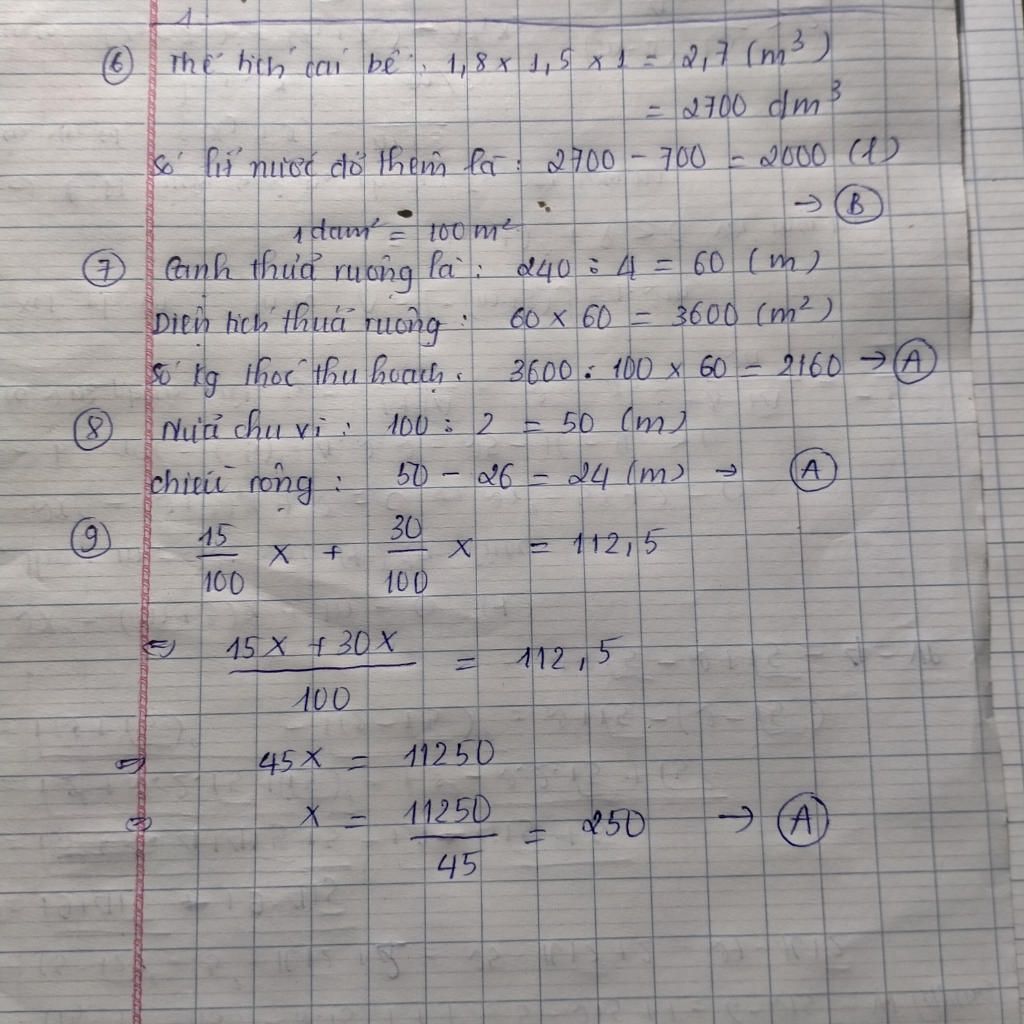 ⑥ Thể tích cái bể: 1,8 x 1,5 x 1 = 2,7 (m³)
= 2700 dm³
Số lít nước đổ thêm là: 2700 - 700 = 2000 (l)
→ Ⓑ
1 dam² = 100 m²
⑦ Cạnh thửa ruộng là: 240 : 4 = 60 (m)
Diện tích thửa ruộng: 60 x 60 = 3600 (m²)
Số kg thóc thu hoạch: 3600 : 100 x 60 = 2160 → Ⓐ
⑧ Nửa chu vi: 100 : 2 = 50 (m)
chiều rộng: 50 - 26 = 24 (m) → Ⓐ
⑨ 15/100 x + 30/100 x = 112,5
⇔ (15x + 30x)/100 = 112,5
⇔ 45x = 11250
⇔ x = 11250/45 = 250 → Ⓐ